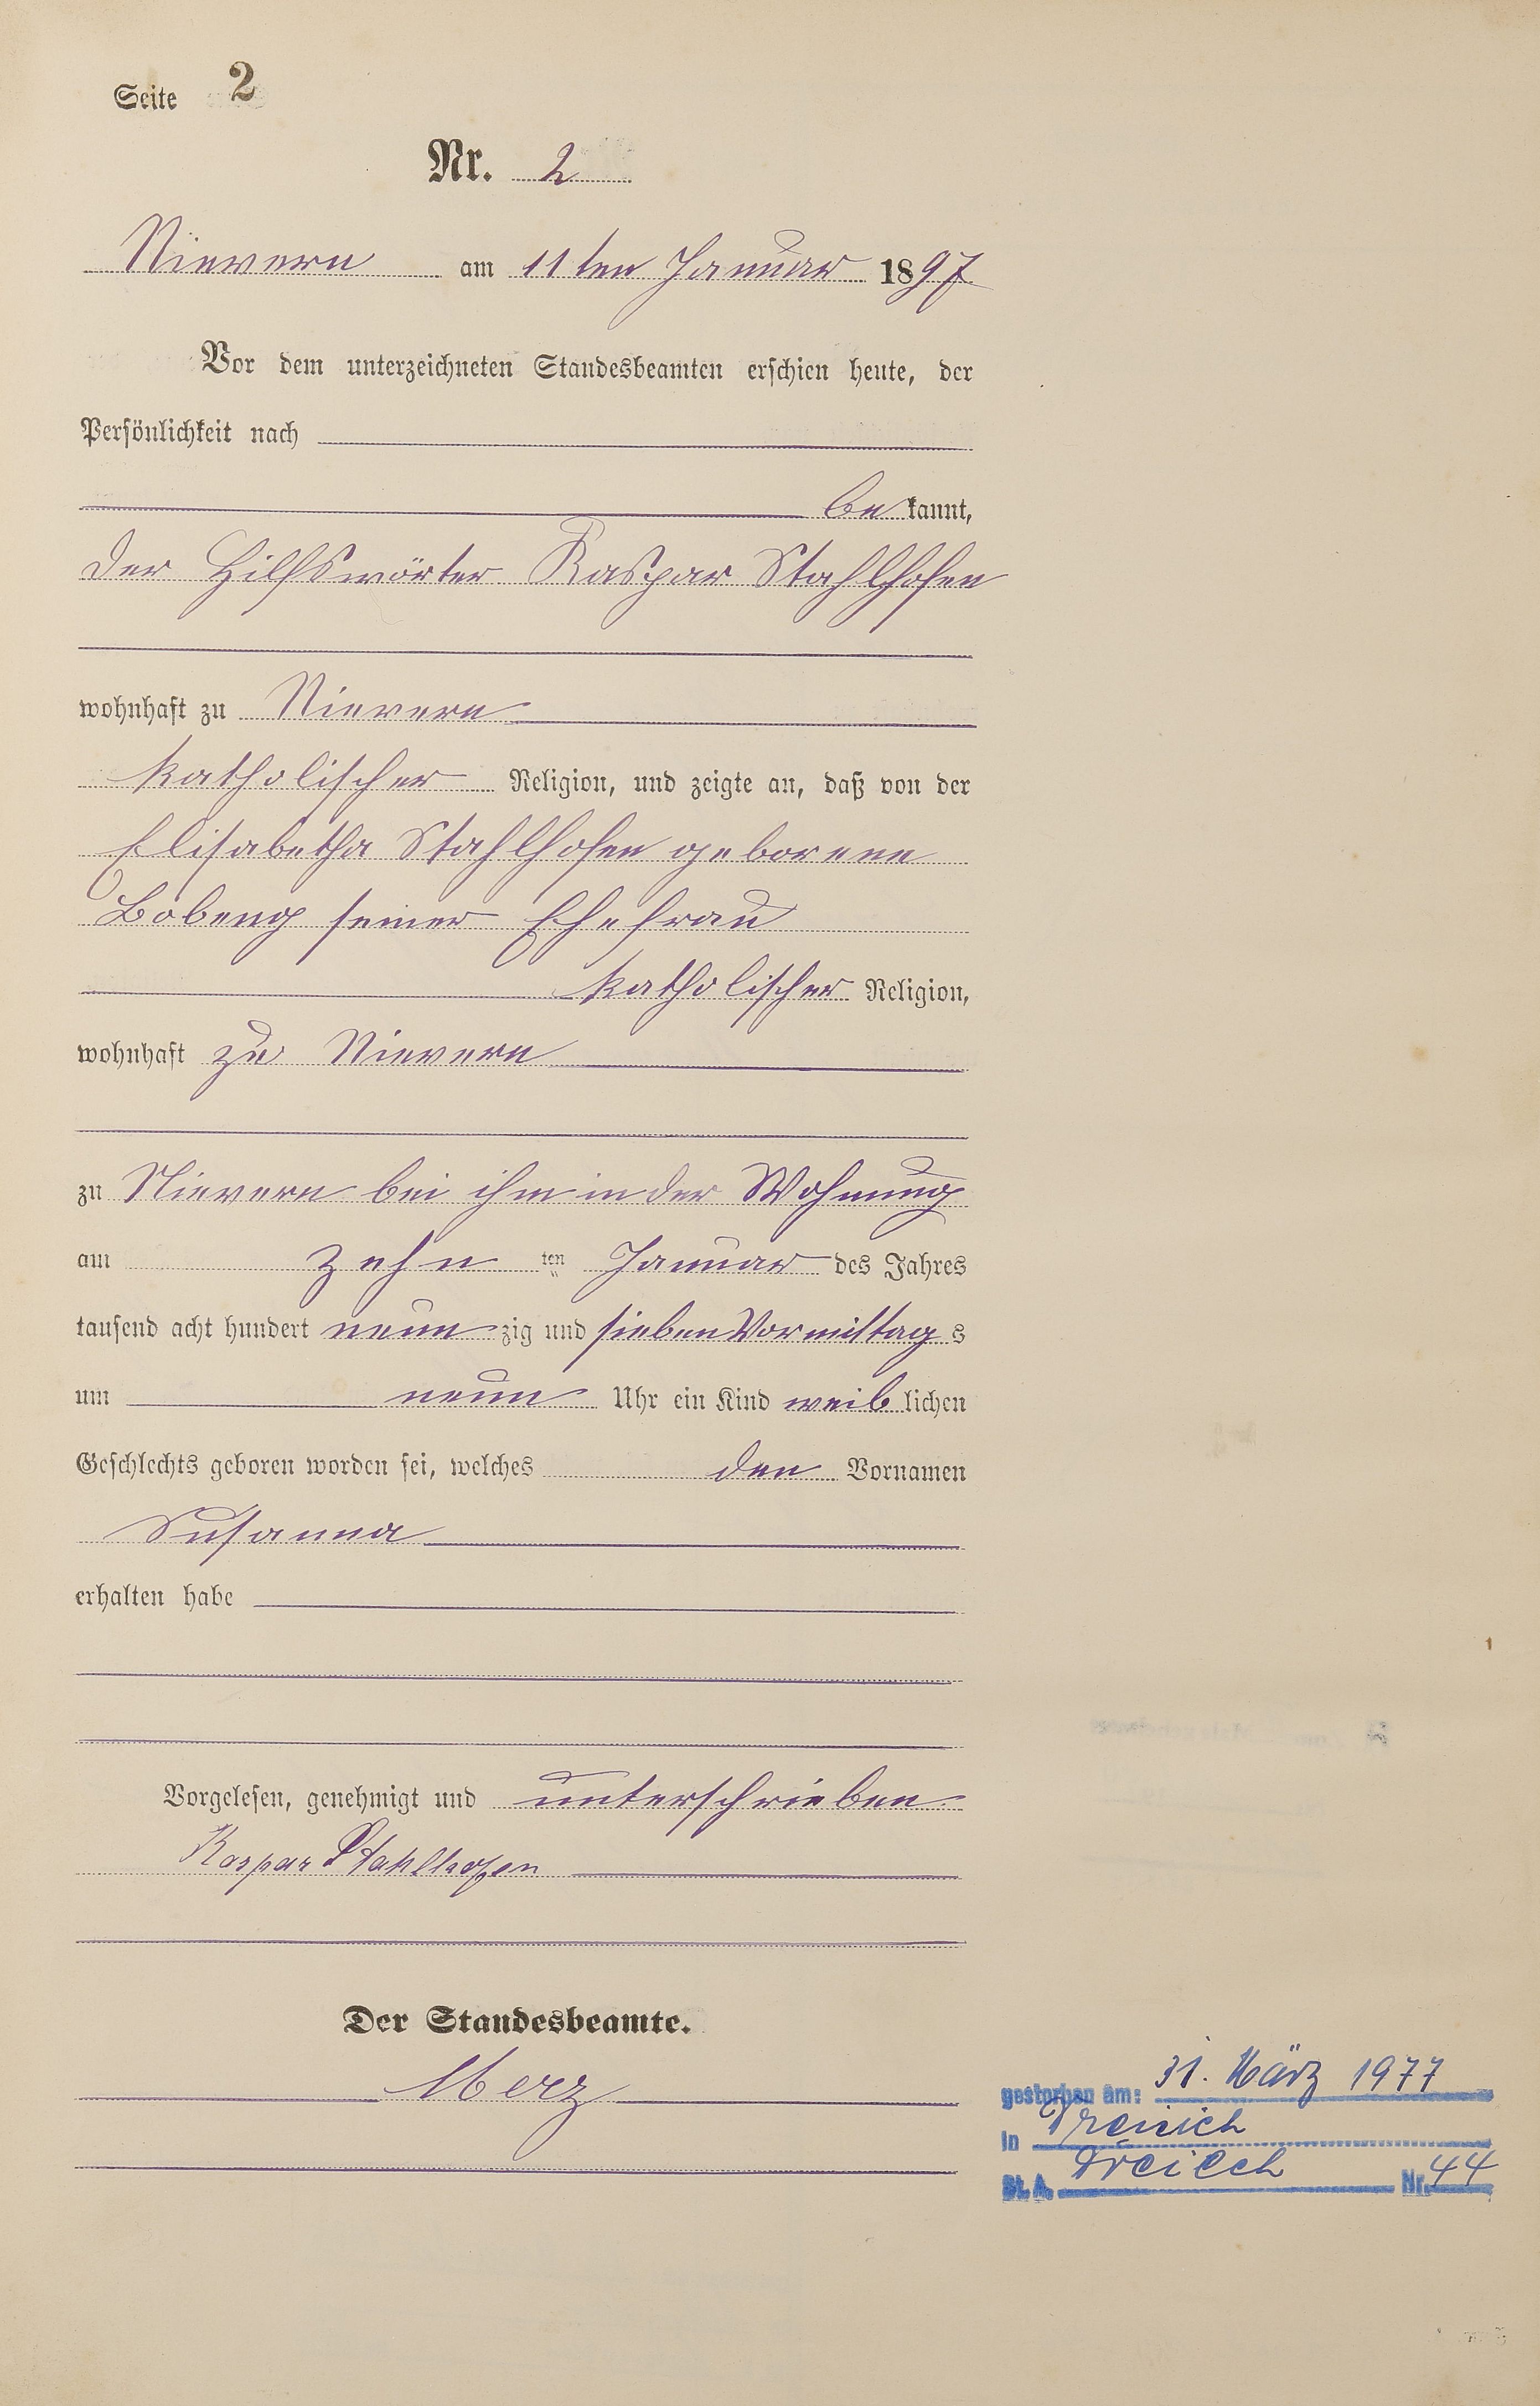 Seite 2
Nr. 2
Nievern am 11ten Januar 1897
Vor dem unterzeichneten Standesbeamten erschien heute, der
Persönlichkeit nach
be kannt,
der Hilfswärter Kaspar Stahlhofen
wohnhaft zu Nievern
katholischer Religion, und zeigte an, daß von der
Elisabetha Stahlhofen geborene
seiner Ehefrau
katholischer Religion,
wohnhaft zu Nievern
zu Nievern bei ihm in der Wohnung
am zehn ten Januar des Jahres
tausend acht hundert neun zig und sieben Vormittag s
um neun Uhr ein Kind weib lichen
Geschlechts geboren worden sei, welches den Vornamen
Susanna
erhalten habe
Vorgelesen, genehmigt und unterschrieben
Kaspar Stahlhofen
Der Standesbeamte.
Merz
gestorben am: 31. März 1977
in Dreieich
St. A. Dreieich Nr. 44